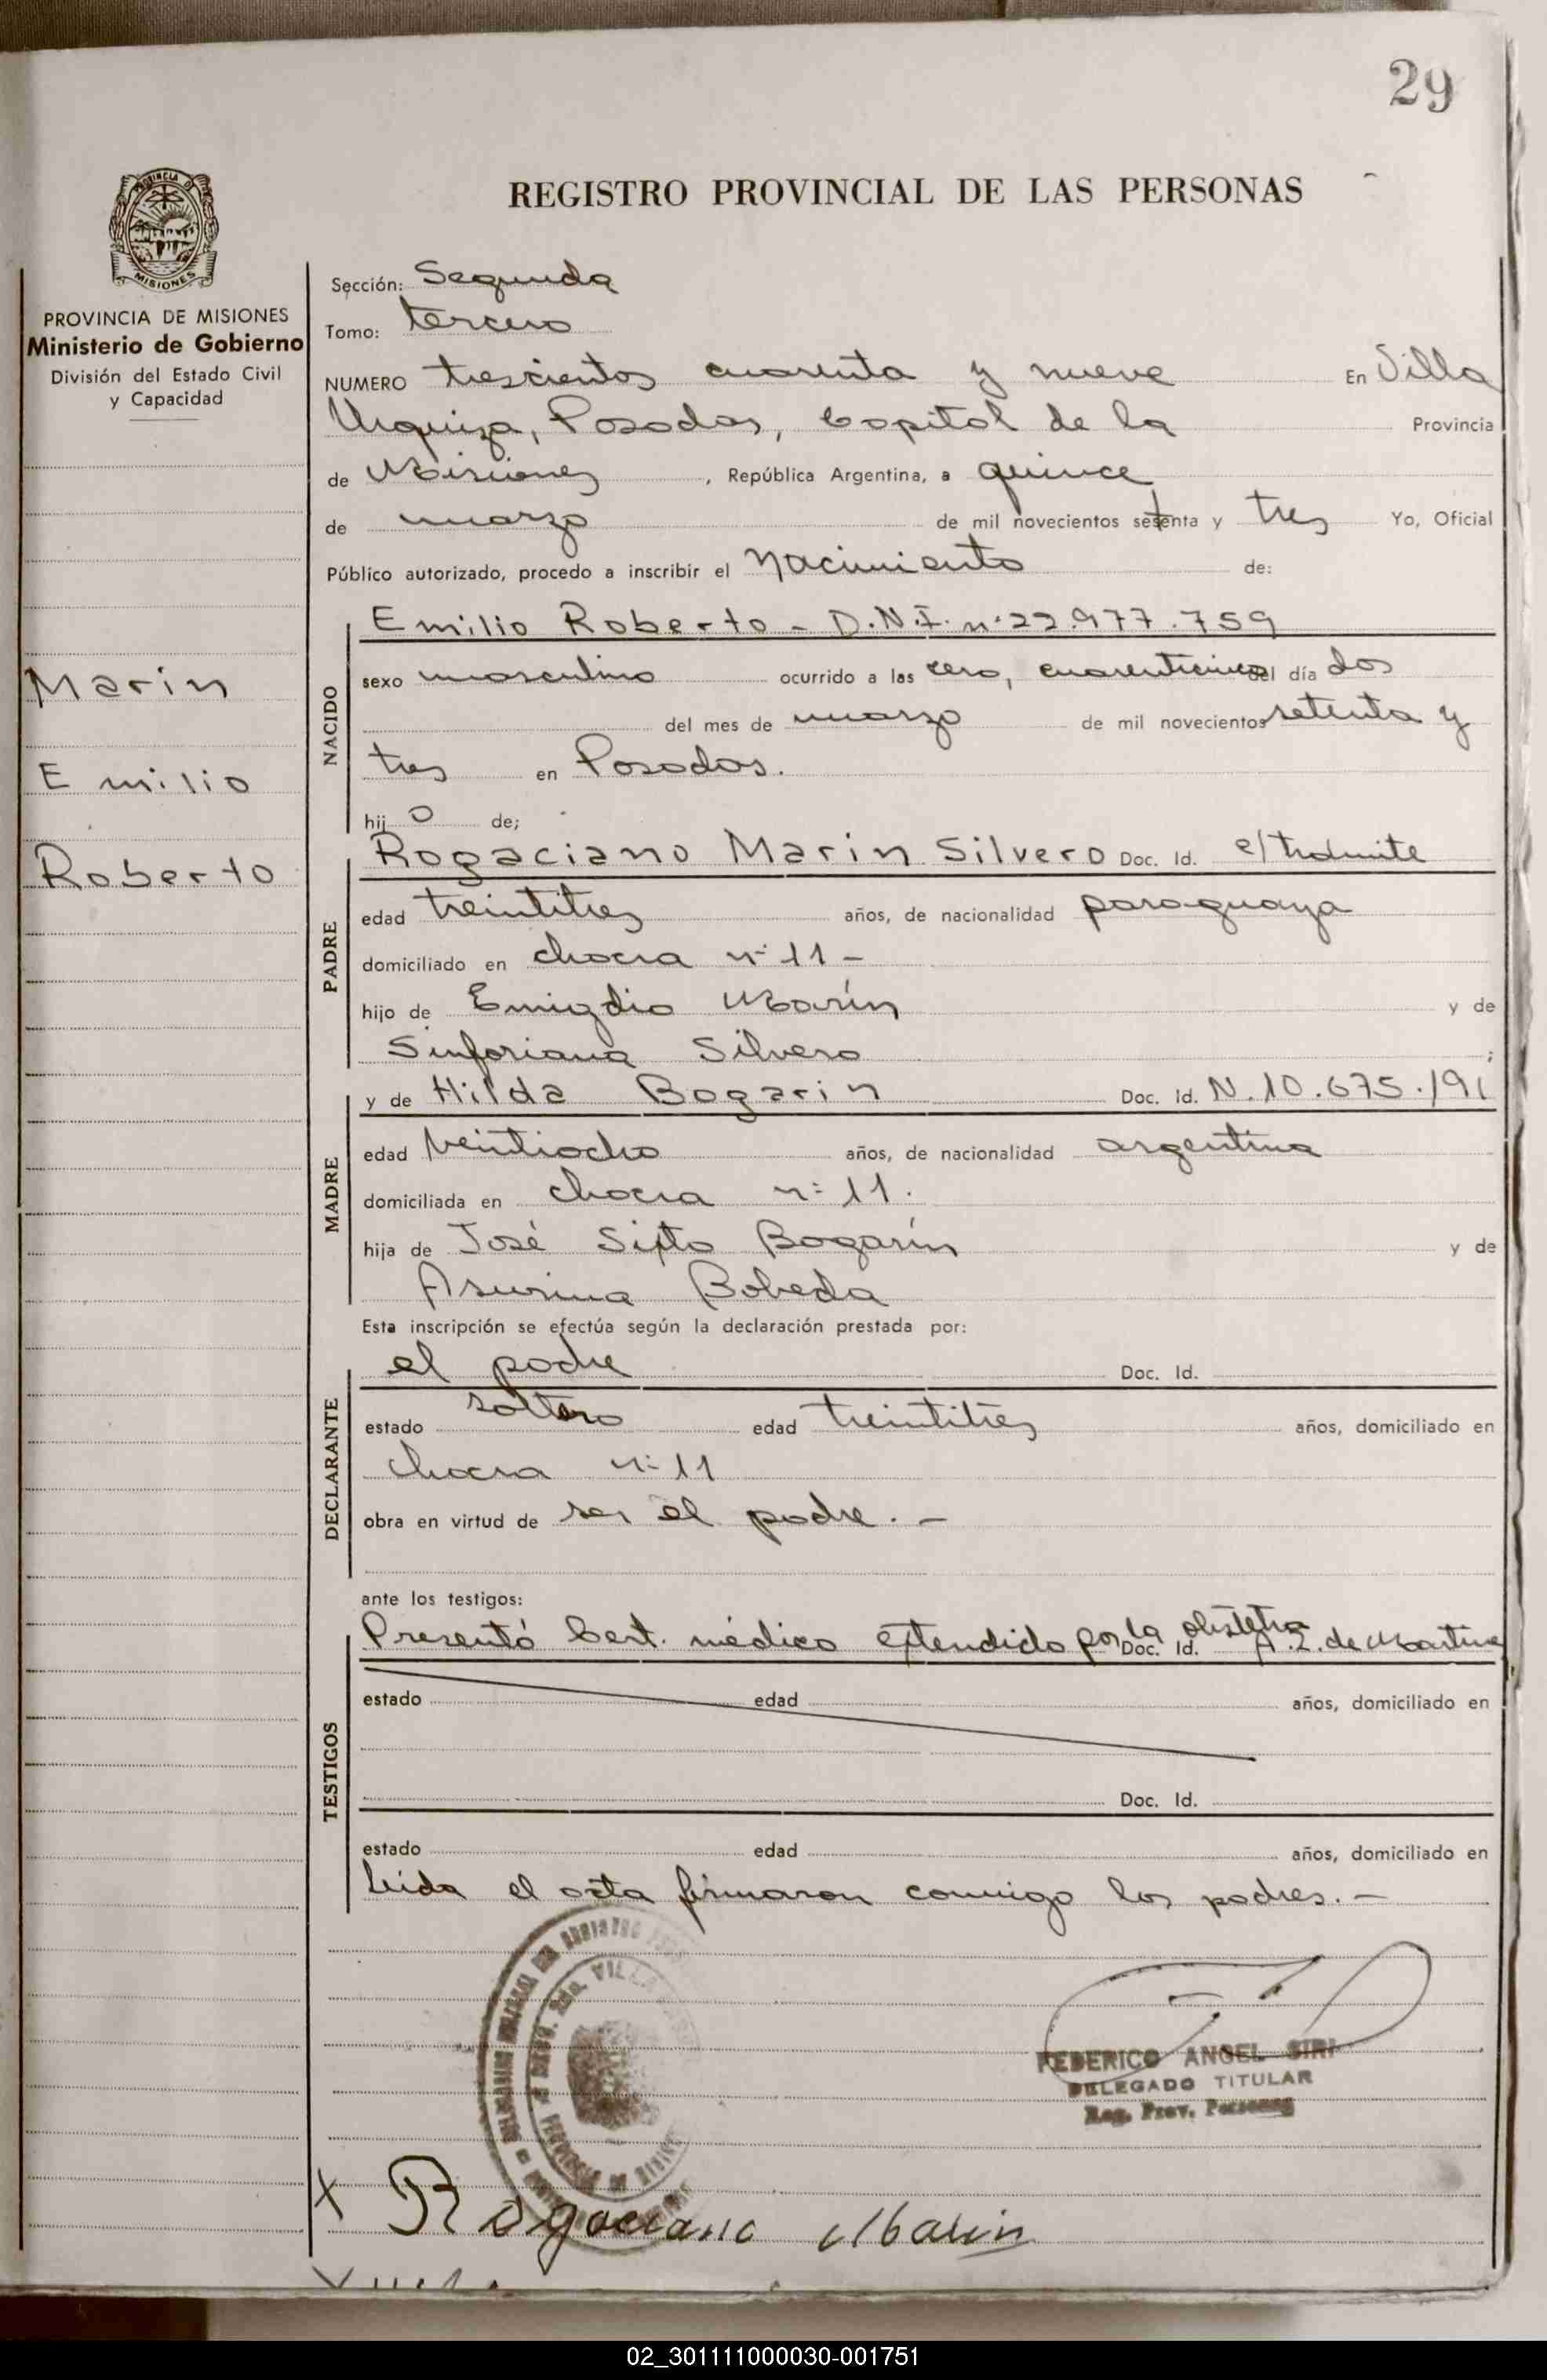 29
REGISTRO PROVINCIAL DE LAS PERSONAS
PROVINCIA DE
MISIONES
PROVINCIA DE MISIONES
Ministerio de Gobierno
División del Estado Civil
y Capacidad
Marin
Emilio
Roberto
Sección: Segunda
Tomo: tercero
NUMERO trescientos cuarenta y nueve En Villa
Urquiza, Posadas, Capital de la Provincia
de Misiones, República Argentina, a quince
de marzo de mil novecientos setenta y tres Yo, Oficial
Público autorizado, procedo a inscribir el Nacimiento de:
NACIDO
Emilio Roberto - D.N.I. nº 22.977.759
sexo masculino ocurrido a las cero, cuarenticinco del día dos
del mes de marzo de mil novecientos setenta y
tres en Posadas.
hijo de;
PADRE
Rogaciano Marin Silvero Doc. Id. e/trámite
edad treintitres años, de nacionalidad paraguaya
domiciliado en chacra nº 11 -
hijo de Emigdio Marín y de
Sinforiana Silvero ;
MADRE
y de Hilda Bogarin Doc. Id. N. 10.675.191
edad veintiocho años, de nacionalidad argentina
domiciliada en chacra nº 11.
hija de José Sixto Bogarín y de
Asunina Bobeda
Esta inscripción se efectúa según la declaración prestada por:
DECLARANTE
el padre Doc. Id.
estado soltero edad treintitres años, domiciliado en
chacra nº 11
obra en virtud de ser el padre. -
ante los testigos:
TESTIGOS
Presentó Cert. médico extendido por la obstetra A. Z. de Martinez
Doc. Id.
estado edad años, domiciliado en
Doc. Id.
estado edad años, domiciliado en
Leida el acta firmaron conmigo los padres. -
FEDERICO ANGEL SIRI
DELEGADO TITULAR
Reg. Prov. Personas
X Rogaciano Marin
02_301111000030-001751